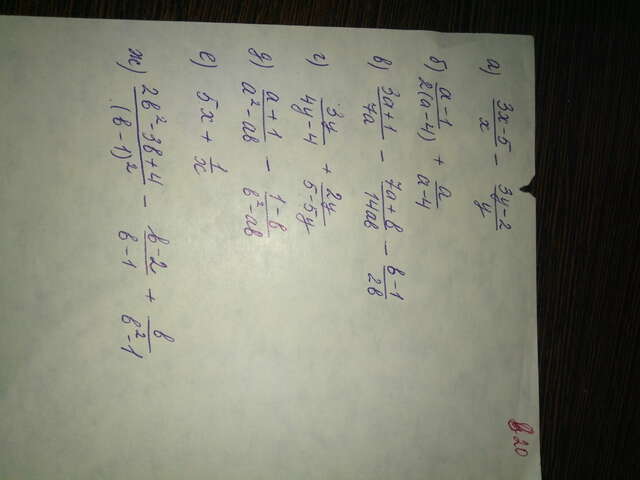 В 20
а) \frac{3x-5}{x} - \frac{3y-2}{y}
б) \frac{a-1}{2(a-4)} + \frac{a}{a-4}
в) \frac{3a+1}{7a} - \frac{7a+b}{14ab} - \frac{b-1}{2b}
г) \frac{3y}{4y-4} + \frac{2y}{5-5y}
д) \frac{a+1}{a^2-ab} - \frac{1-b}{b^2-ab}
е) 5x + \frac{1}{x}
ж) \frac{2b^2-3b+4}{(b-1)^2} - \frac{b-2}{b-1} + \frac{b}{b^2-1}